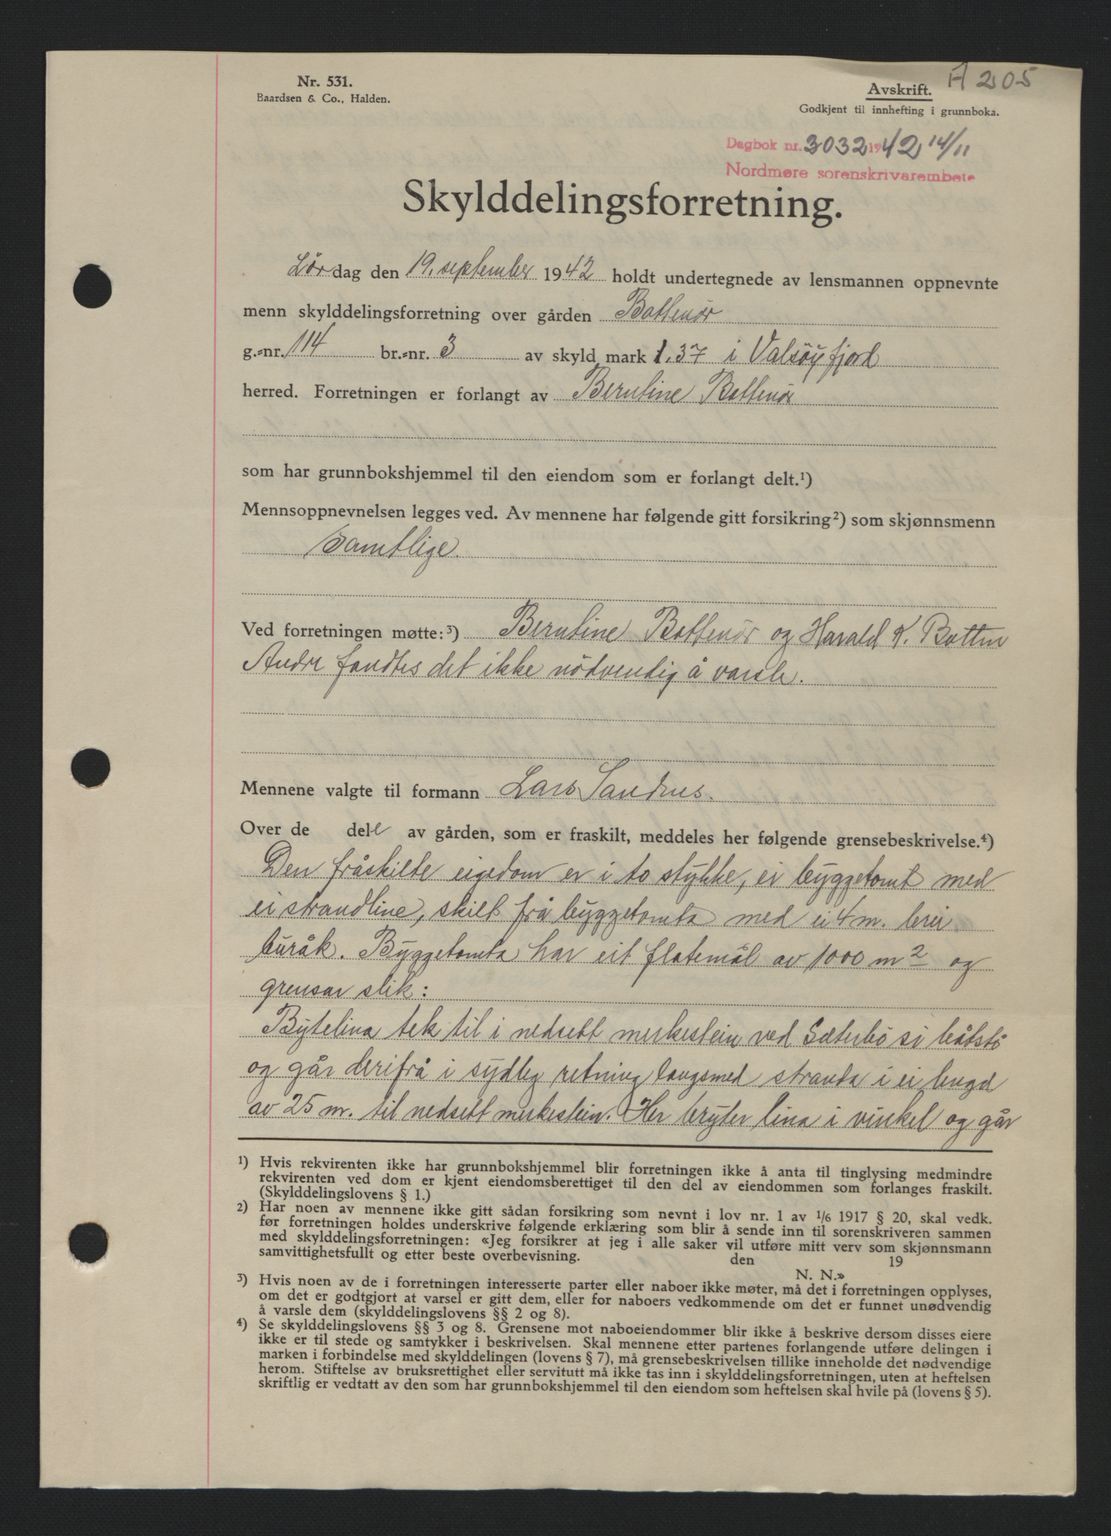 A 205
Nr. 531.
Baardsen & Co., Halden.
Avskrift.
Godkjent til innhefting i grunnboka.
Dagbok nr. 3032 1942 14/11
Nordmøre sorenskrivarembete
Skylddelingsforretning.
Lördag den 19. september 1942 holdt undertegnede av lensmannen oppnevnte
menn skylddelingsforretning over gården Bottenör
g.-nr. 114 br.-nr. 3 av skyld mark 1.37 i Valsöyfjord
herred. Forretningen er forlangt av Berntine Bottenör
som har grunnbokshjemmel til den eiendom som er forlangt delt.¹)
Mennsoppnevnelsen legges ved. Av mennene har følgende gitt forsikring²) som skjønnsmenn
Samtlige.
Ved forretningen møtte:³) Berntine Bottenör og Harald K. Botten
Andre fandtes det ikke nödvendig å varsle.
Mennene valgte til formann Lars Sandnes.
Over de dele av gården, som er fraskilt, meddeles her følgende grensebeskrivelse.⁴)
Den fråskilte eigedom er i to stykke, ei byggetomt med
ei strandline, skilt frå byggetomta med ei 4 m. brei
buråk. Byggetomta har eit flatemål av 1000 m² og
grensar slik:
Bytelina tek til i nedsett merkestein ved Sæterbö si båtstö
og går derifrå i sydleg retning langsmed stranda i ei lengd
av 25 m. til nedsett merkestein. Her bryter lina i vinkel og går
¹) Hvis rekvirenten ikke har grunnbokshjemmel blir forretningen ikke å anta til tinglysing medmindre
rekvirenten ved dom er kjent eiendomsberettiget til den del av eiendommen som forlanges fraskilt.
(Skylddelingslovens § 1.)
²) Har noen av mennene ikke gitt sådan forsikring som nevnt i lov nr. 1 av 1/6 1917 § 20, skal vedk.
før forretningen holdes underskrive følgende erklæring som blir å sende inn til sorenskriveren sammen
med skylddelingsforretningen: «Jeg forsikrer at jeg i alle saker vil utføre mitt verv som skjønnsmann
samvittighetsfullt og etter beste overbevisning. den 19
N. N.»
³) Hvis noen av de i forretningen interesserte parter eller naboer ikke møter, må det i forretningen opplyses,
om det er godtgjort at varsel er gitt dem, eller for naboers vedkommende om det er funnet unødvendig
å varsle dem (skylddelingslovens §§ 2 og 8).
⁴) Se skylddelingslovens §§ 3 og 8. Grensene mot naboeiendommer blir ikke å beskrive dersom disses eiere
ikke er til stede og samtykker i beskrivelsen. Skal mennene etter partenes forlangende utføre delingen i
marken i forbindelse med skylddelingen (lovens § 7), må grensebeskrivelsen tillike inneholde det nødvendige
herom. Stiftelse av bruksrettighet eller servitutt må ikke tas inn i skylddelingsforretningen, uten at heftelsen
skriftlig er vedtatt av den som har grunnbokshjemmel til den eiendom som heftelsen skal hvile på (lovens § 5).